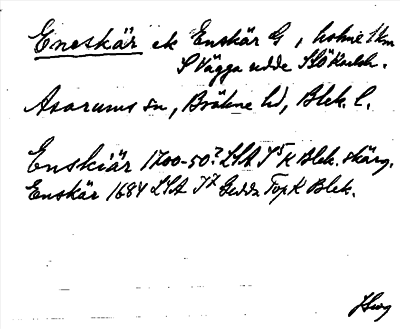 Eneskär ek Enskär G, holme 1 km
S Vägga udde SSÖ Karlsh.
Asarums sn, Bräkne hd, Blek. l.
Enskiär 1700-50? LSA I 5 K Blek. skärg.
Enskär 1684 LSA I 7 Gedda Top K Blek.